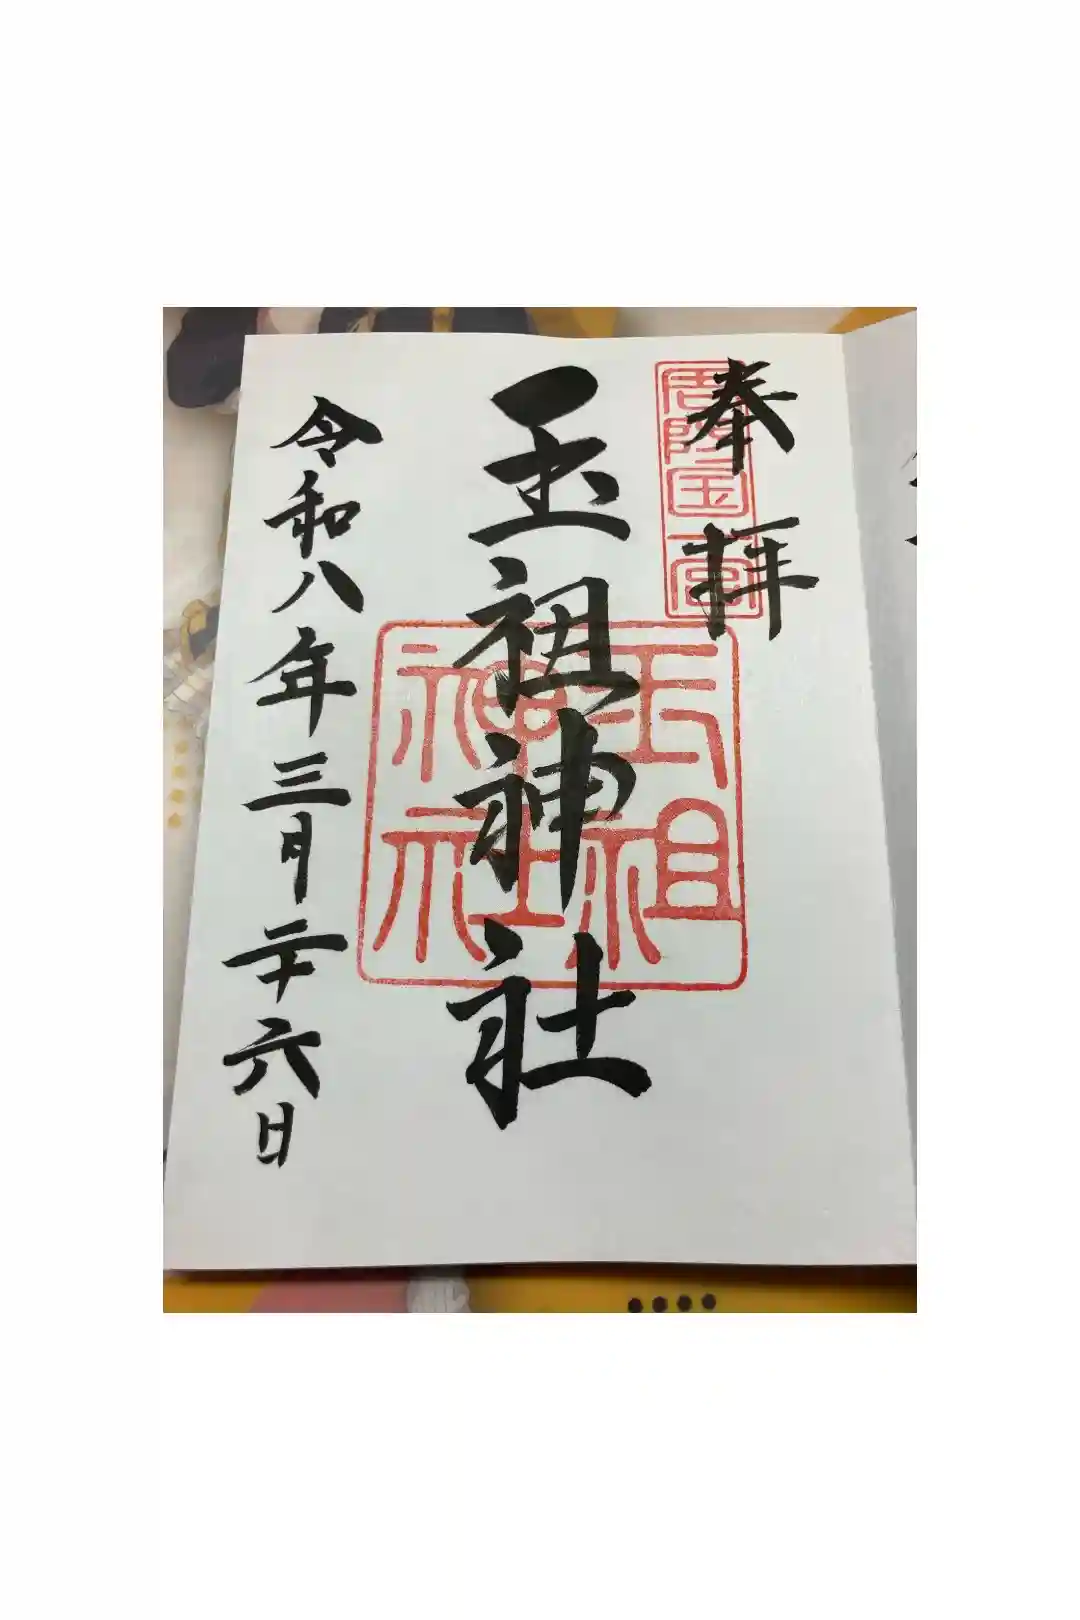 奉拝
周防国一宮
玉祖神社
玉祖神社
令和八年三月二十六日